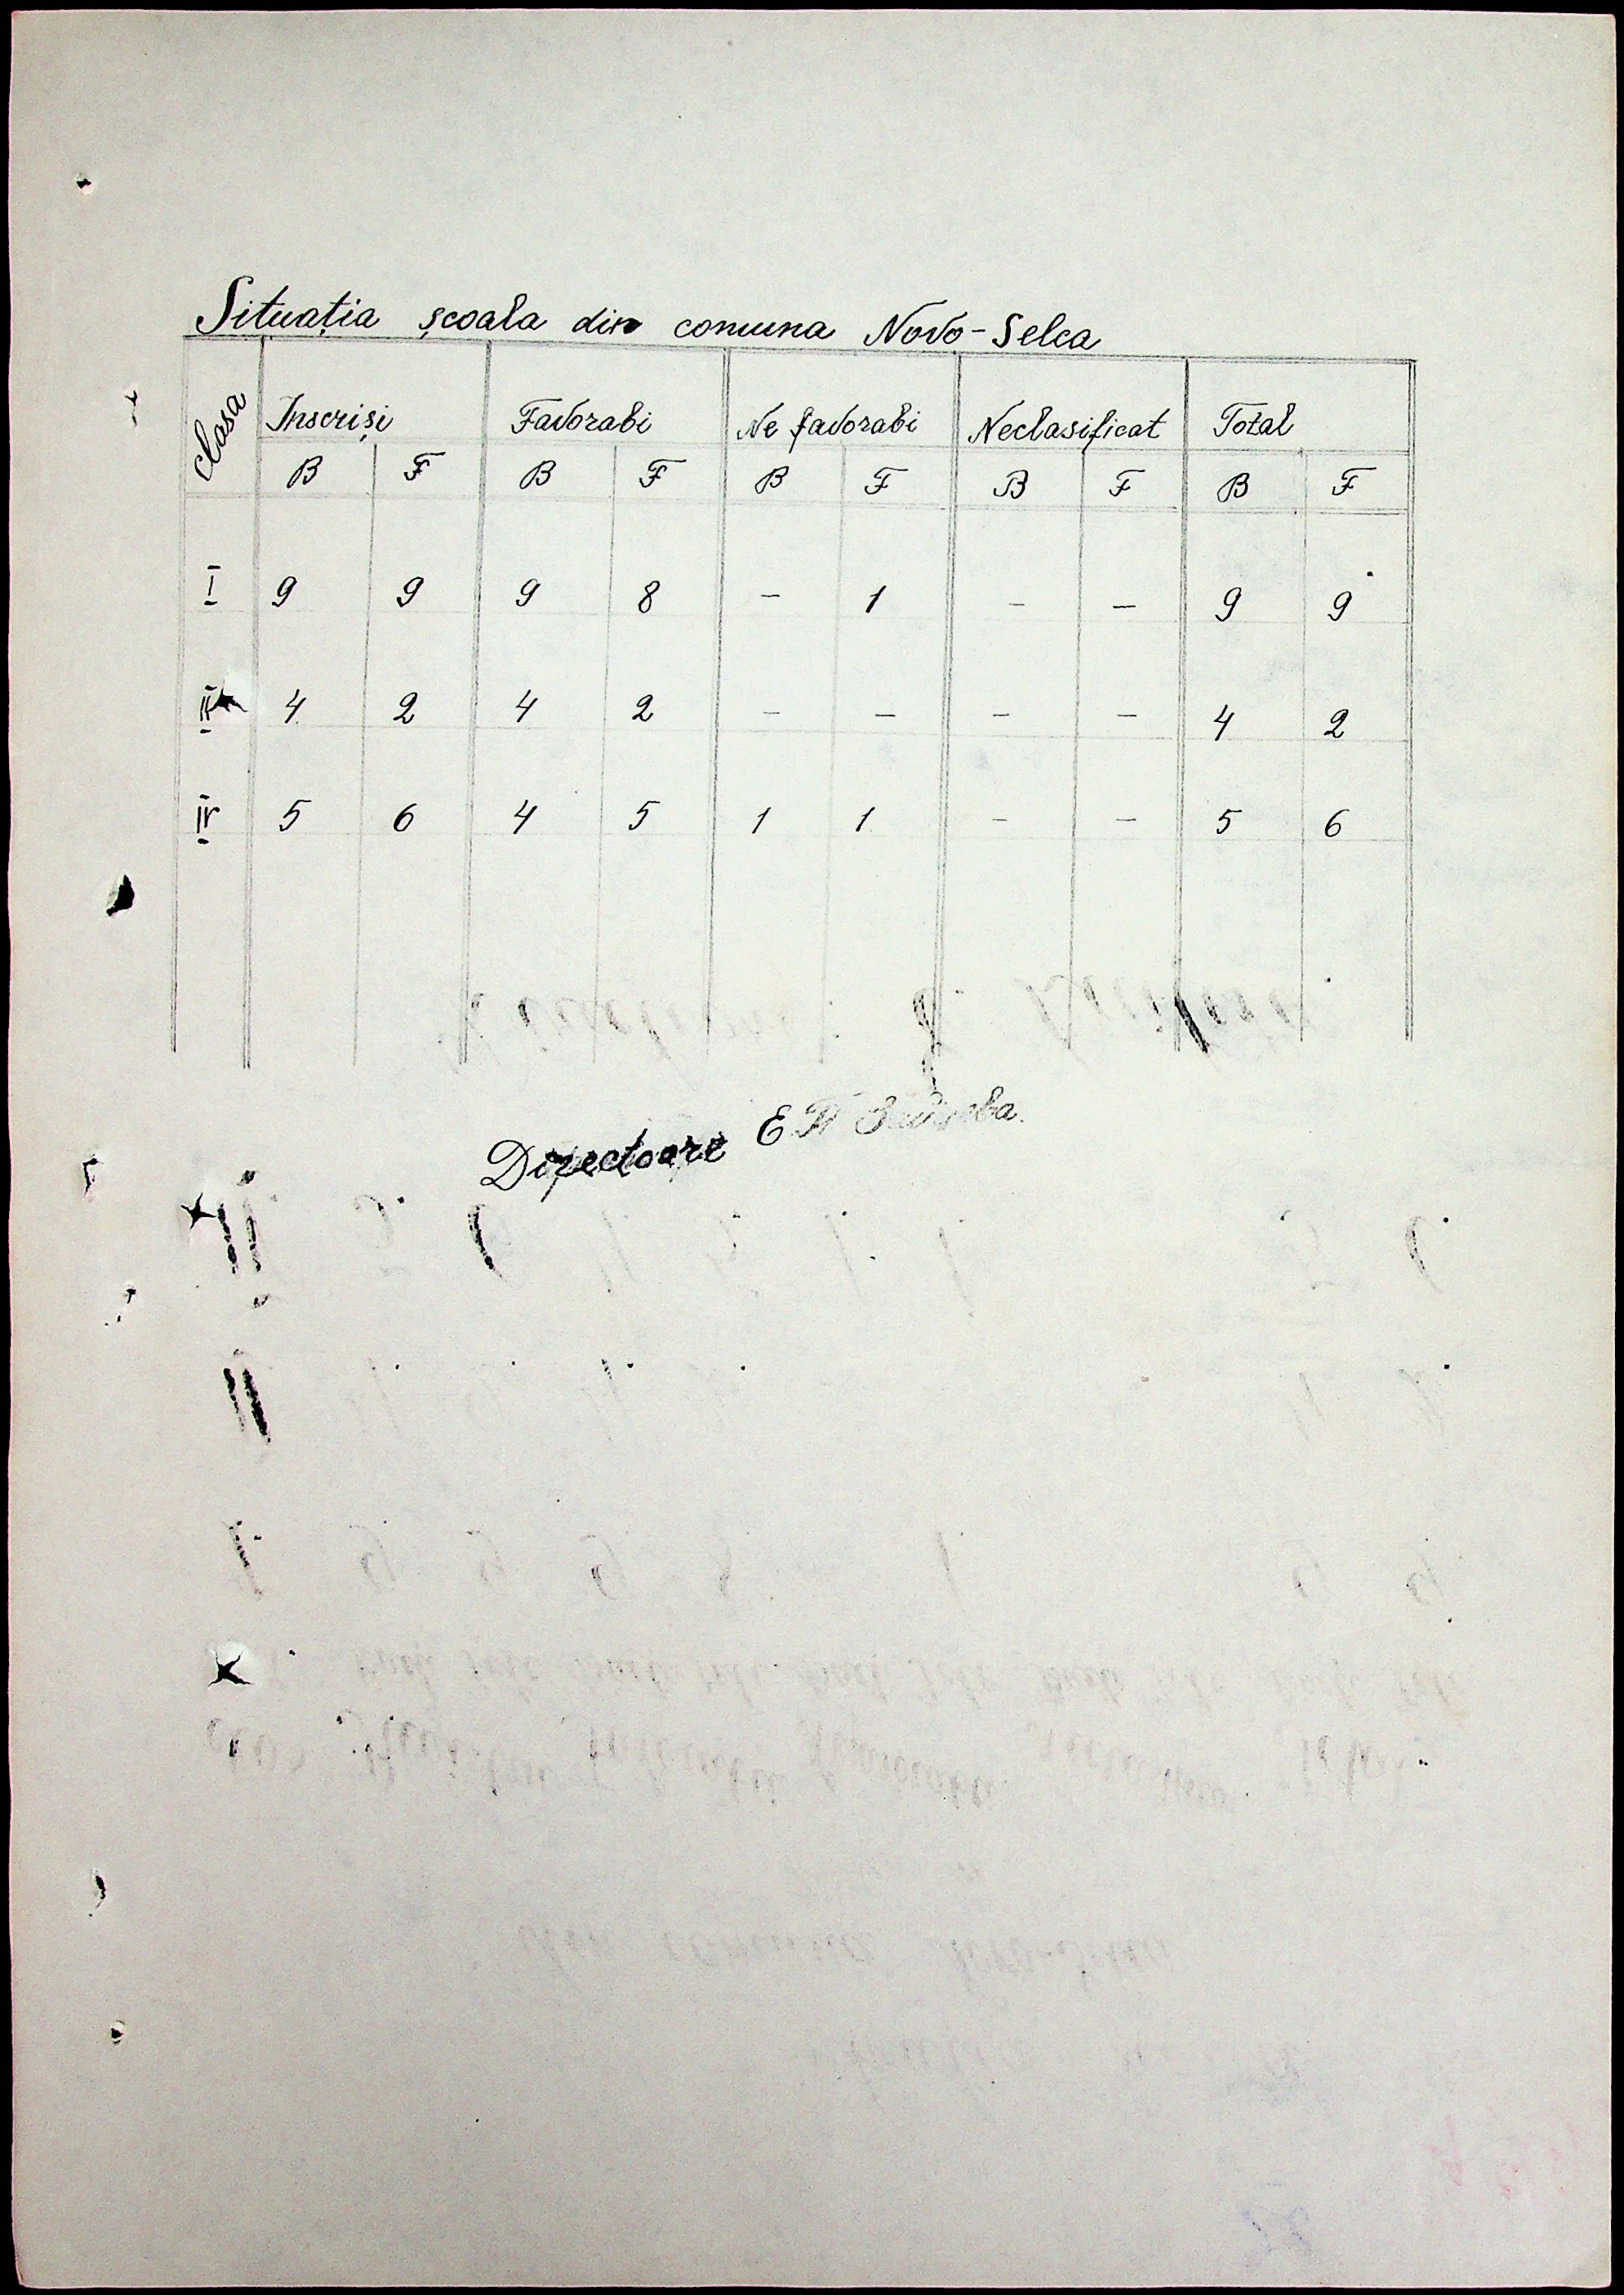 Situația școala din comuna Novo-Selca
clasa Inscriși Favorabi Ne favorabi Neclasificat Total
B F B F B F B F B F
I 9 9 9 8 – 1 – – 9 9
II 4 2 4 2 – – – – 4 2
IV 5 6 4 5 1 1 – – 5 6
Directoare E